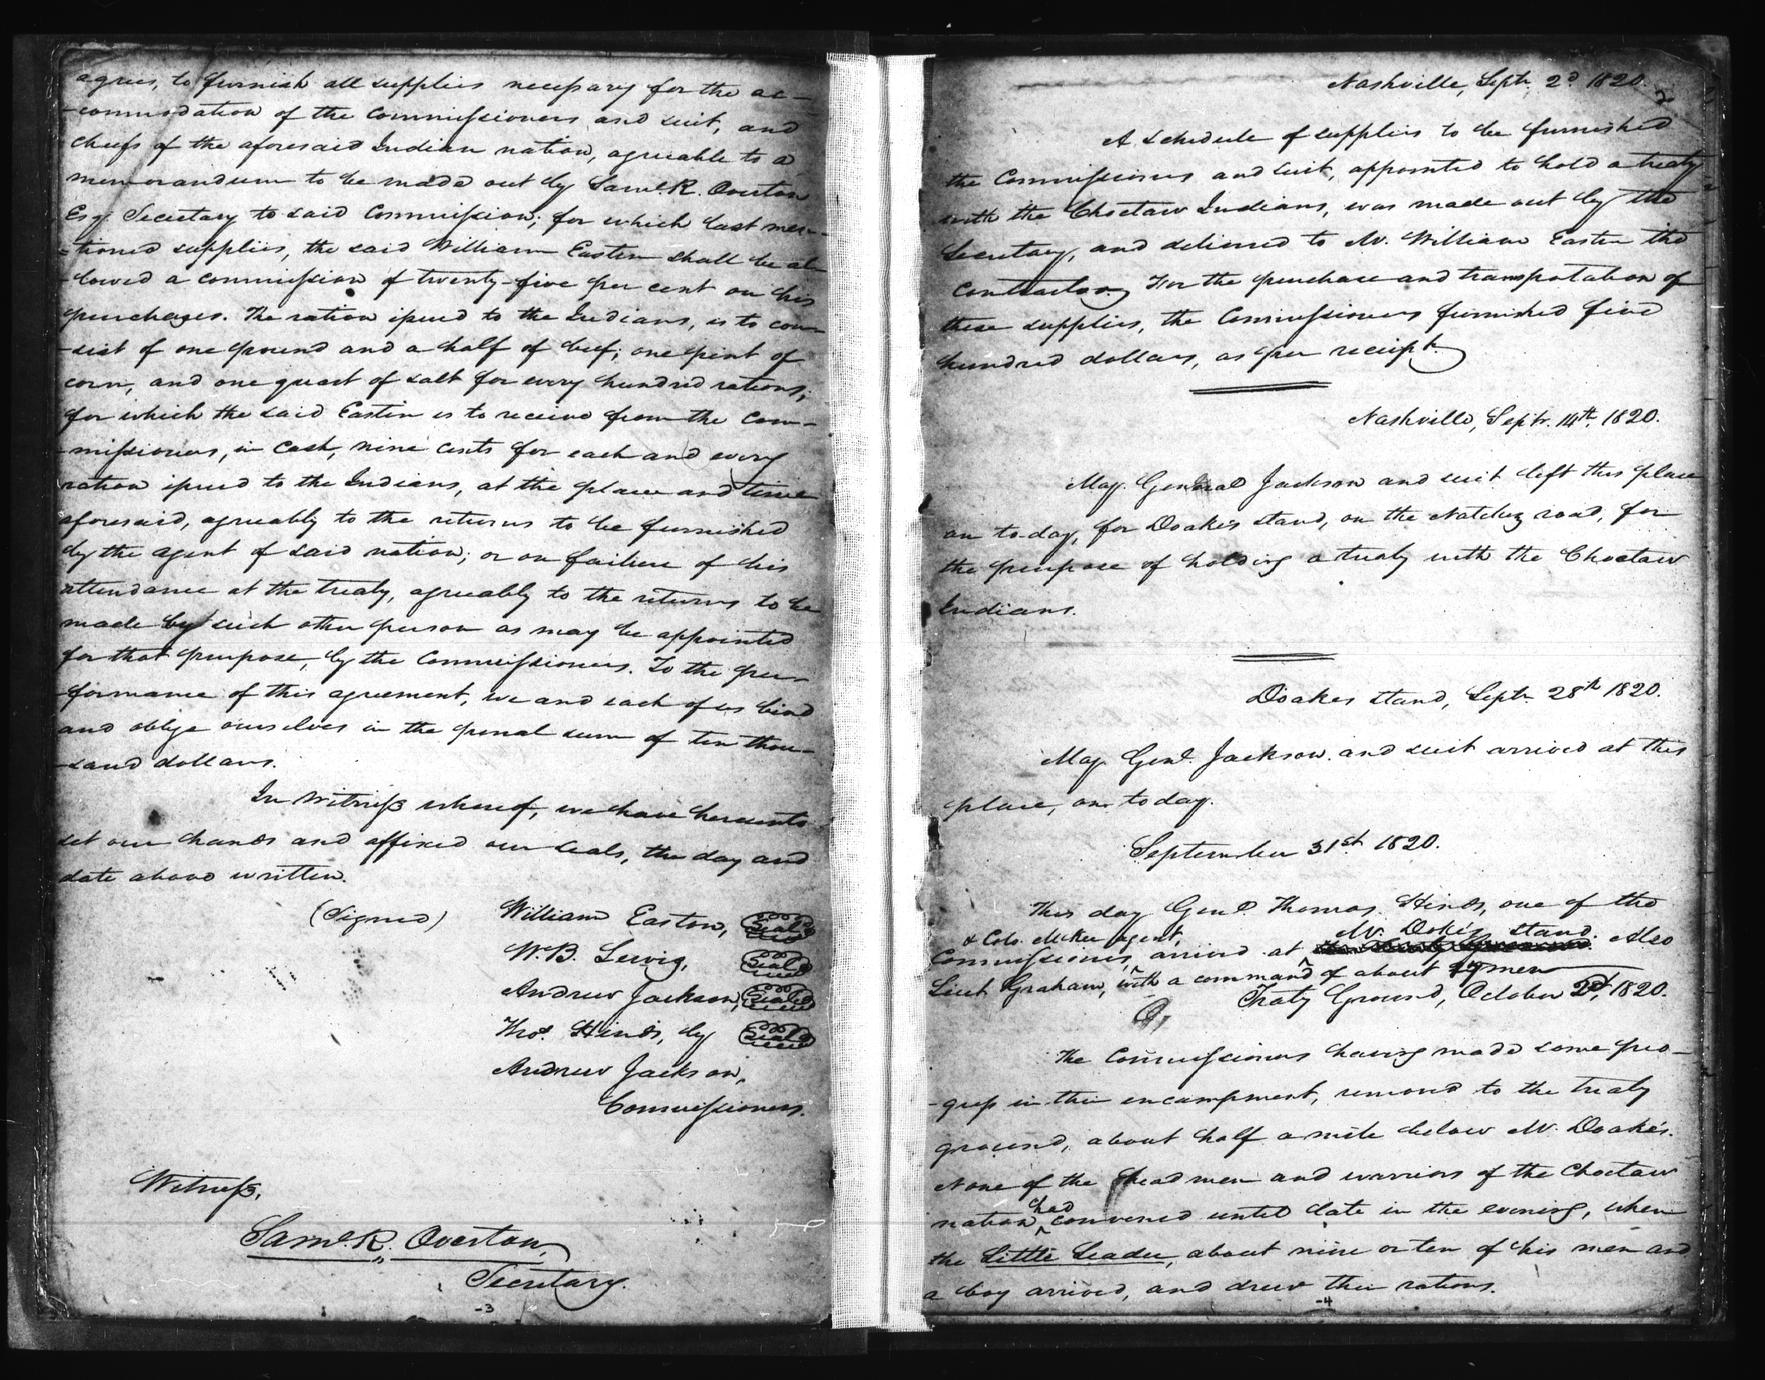 agrees, to furnish all supplies necessary for the ac-
-commodation of the Commissioners and suit, and
chiefs of the aforesaid Indian nation, agreeable to a
memorandum to be made out by Saml. R. Overton
Esq. Secretary to said Commission; for which last men-
-tioned supplies, the said William Easten shall be al-
-lowed a commission of twenty-five per cent on his
purchases. The ration issued to the Indians, is to con-
-sist of one pound and a half of beef; one pint of
corn, and one quart of salt for every hundred rations;
for which the said Easten is to receive from the Com-
-missioners, in Cash, nine cents for each and every
ration issued to the Indians, at the place and time
aforesaid, agreeably to the returns to be furnished
by the agent of said nation; or on failure of his
attendance at the treaty, agreeably to the returns to be
made by such other person as may be appointed
for that purpose, by the Commissioners. To the per-
-formance of this agreement, we and each of us bind
and oblige ourselves in the penal sum of ten thou-
-sand dollars.
In Witness whereof, we have hereunto
set our hands and affixed our seals, the day and
date above written.
(Signed) William Easton, Seal
W. B. Lewis, Seal
Andrew Jackson, Seal
Thos. Hinds, by Seal
Andrew Jackson,
Commissioners.
Witness,
Saml. R. Overton,
Secretary.
-3
Nashville, Sept. 2d 1820.
2
A schedule of supplies to be furnished
the Commissioners and suit, appointed to hold a treaty
with the Choctaw Indians, was made out by the
Secretary, and delivered to Mr. William Easten the
Contractor. For the purchase and transportation of
these supplies, the Commissioners furnished five
hundred dollars, as per receipt.
Nashville, Septr. 14th, 1820.
Maj. General Jackson and suit left this place
on to-day, for Doake's stand, on the Natchez road, for
the purpose of holding a treaty with the Choctaw
Indians.
Doakes stand, Sept. 28th 1820.
Maj. Genl. Jackson and suit arrived at this
place, on to day.
September 31st 1820.
This day Genl. Thomas Hinds, one of the
& Colo. McKee agent, Mr. Dokes stand.
Commissioners, arrived at Also
Lieut Graham, with a command of about men
Treaty Ground, October 2d, 1820.
The Commissioners having made some pro-
-gress in their encampment, removed to the treaty
ground, about half a mile below Mr. Doake's.
None of the head men and warriors of the Choctaw
had
nation, convened until late in the evening, when
the Little Leader, about nine or ten of his men and
a boy arrived, and drew their rations.
-4